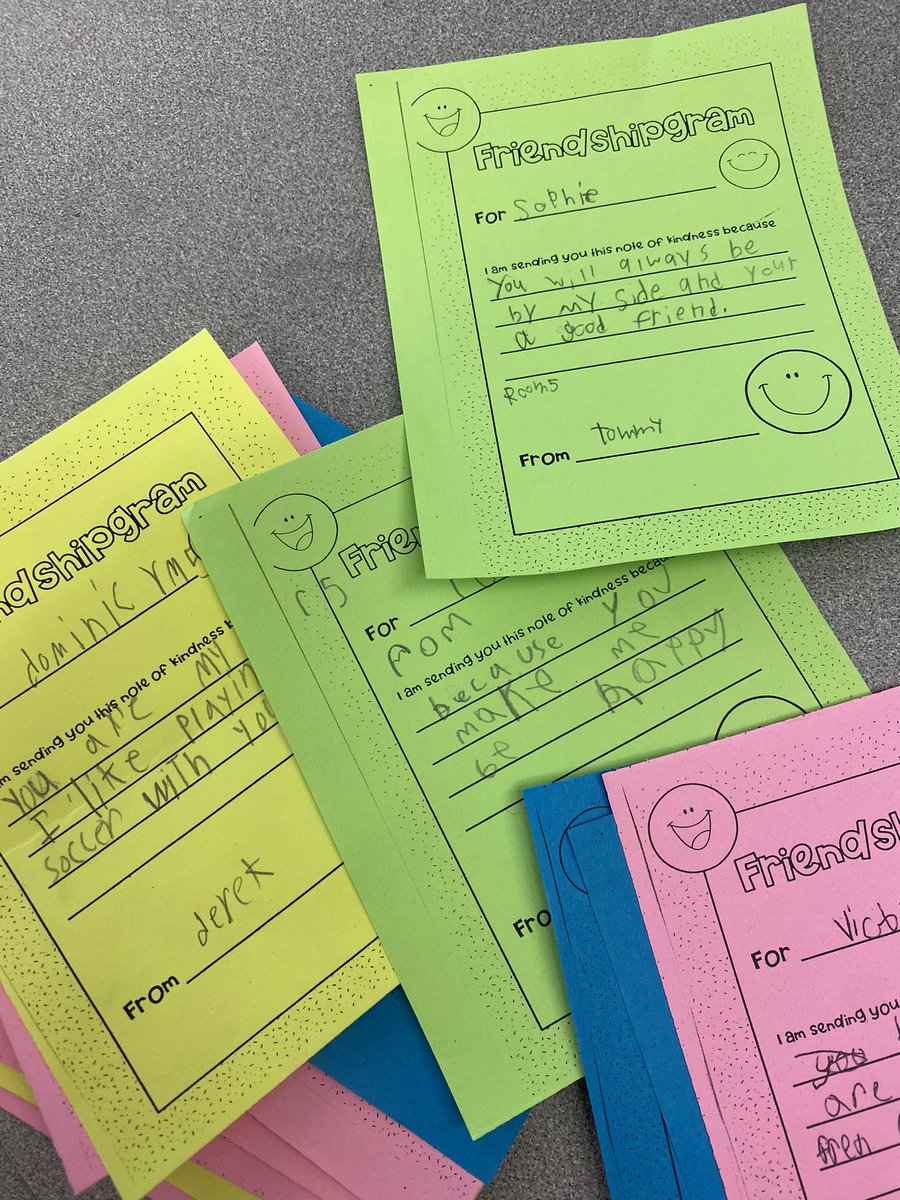 Friendshipgram
For Sophie
I am sending you this note of kindness because
You will always be
by my side and your
a good friend.
Room5
From tommy
dshipgram
dominic
sending you this note of kindness
You are my
I like
soccer with
From derek
r5
For
fom
I am sending you this note of kindness
because you
make me
be happy
Friendsh
For
I am sending you
you
are